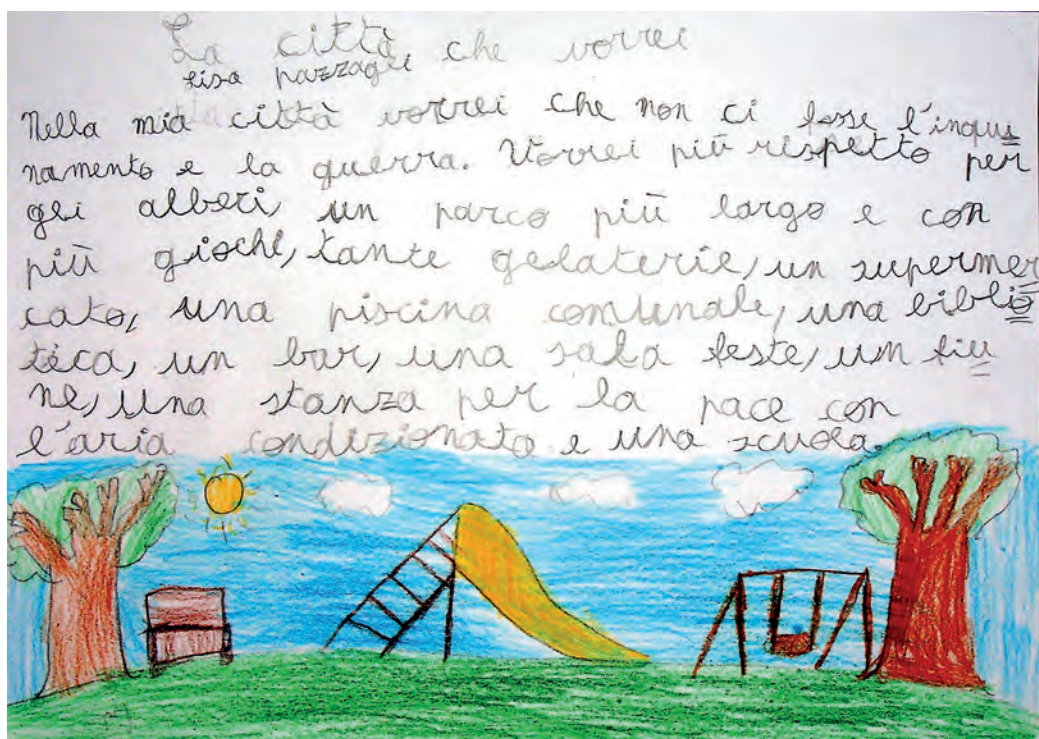 La città che vorrei
Lisa pazzagli
Nella mia città vorrei che non ci fosse l'inqui
namento e la guerra. Vorrei più rispetto per
gli alberi, un parco più largo e con
più giochi, tante gelaterie, un supermer
cato, una piscina comunale, una biblio
teca, un bar, una sala feste, un fiu
me, una stanza per la pace con
l'aria condizionata e una scuola.